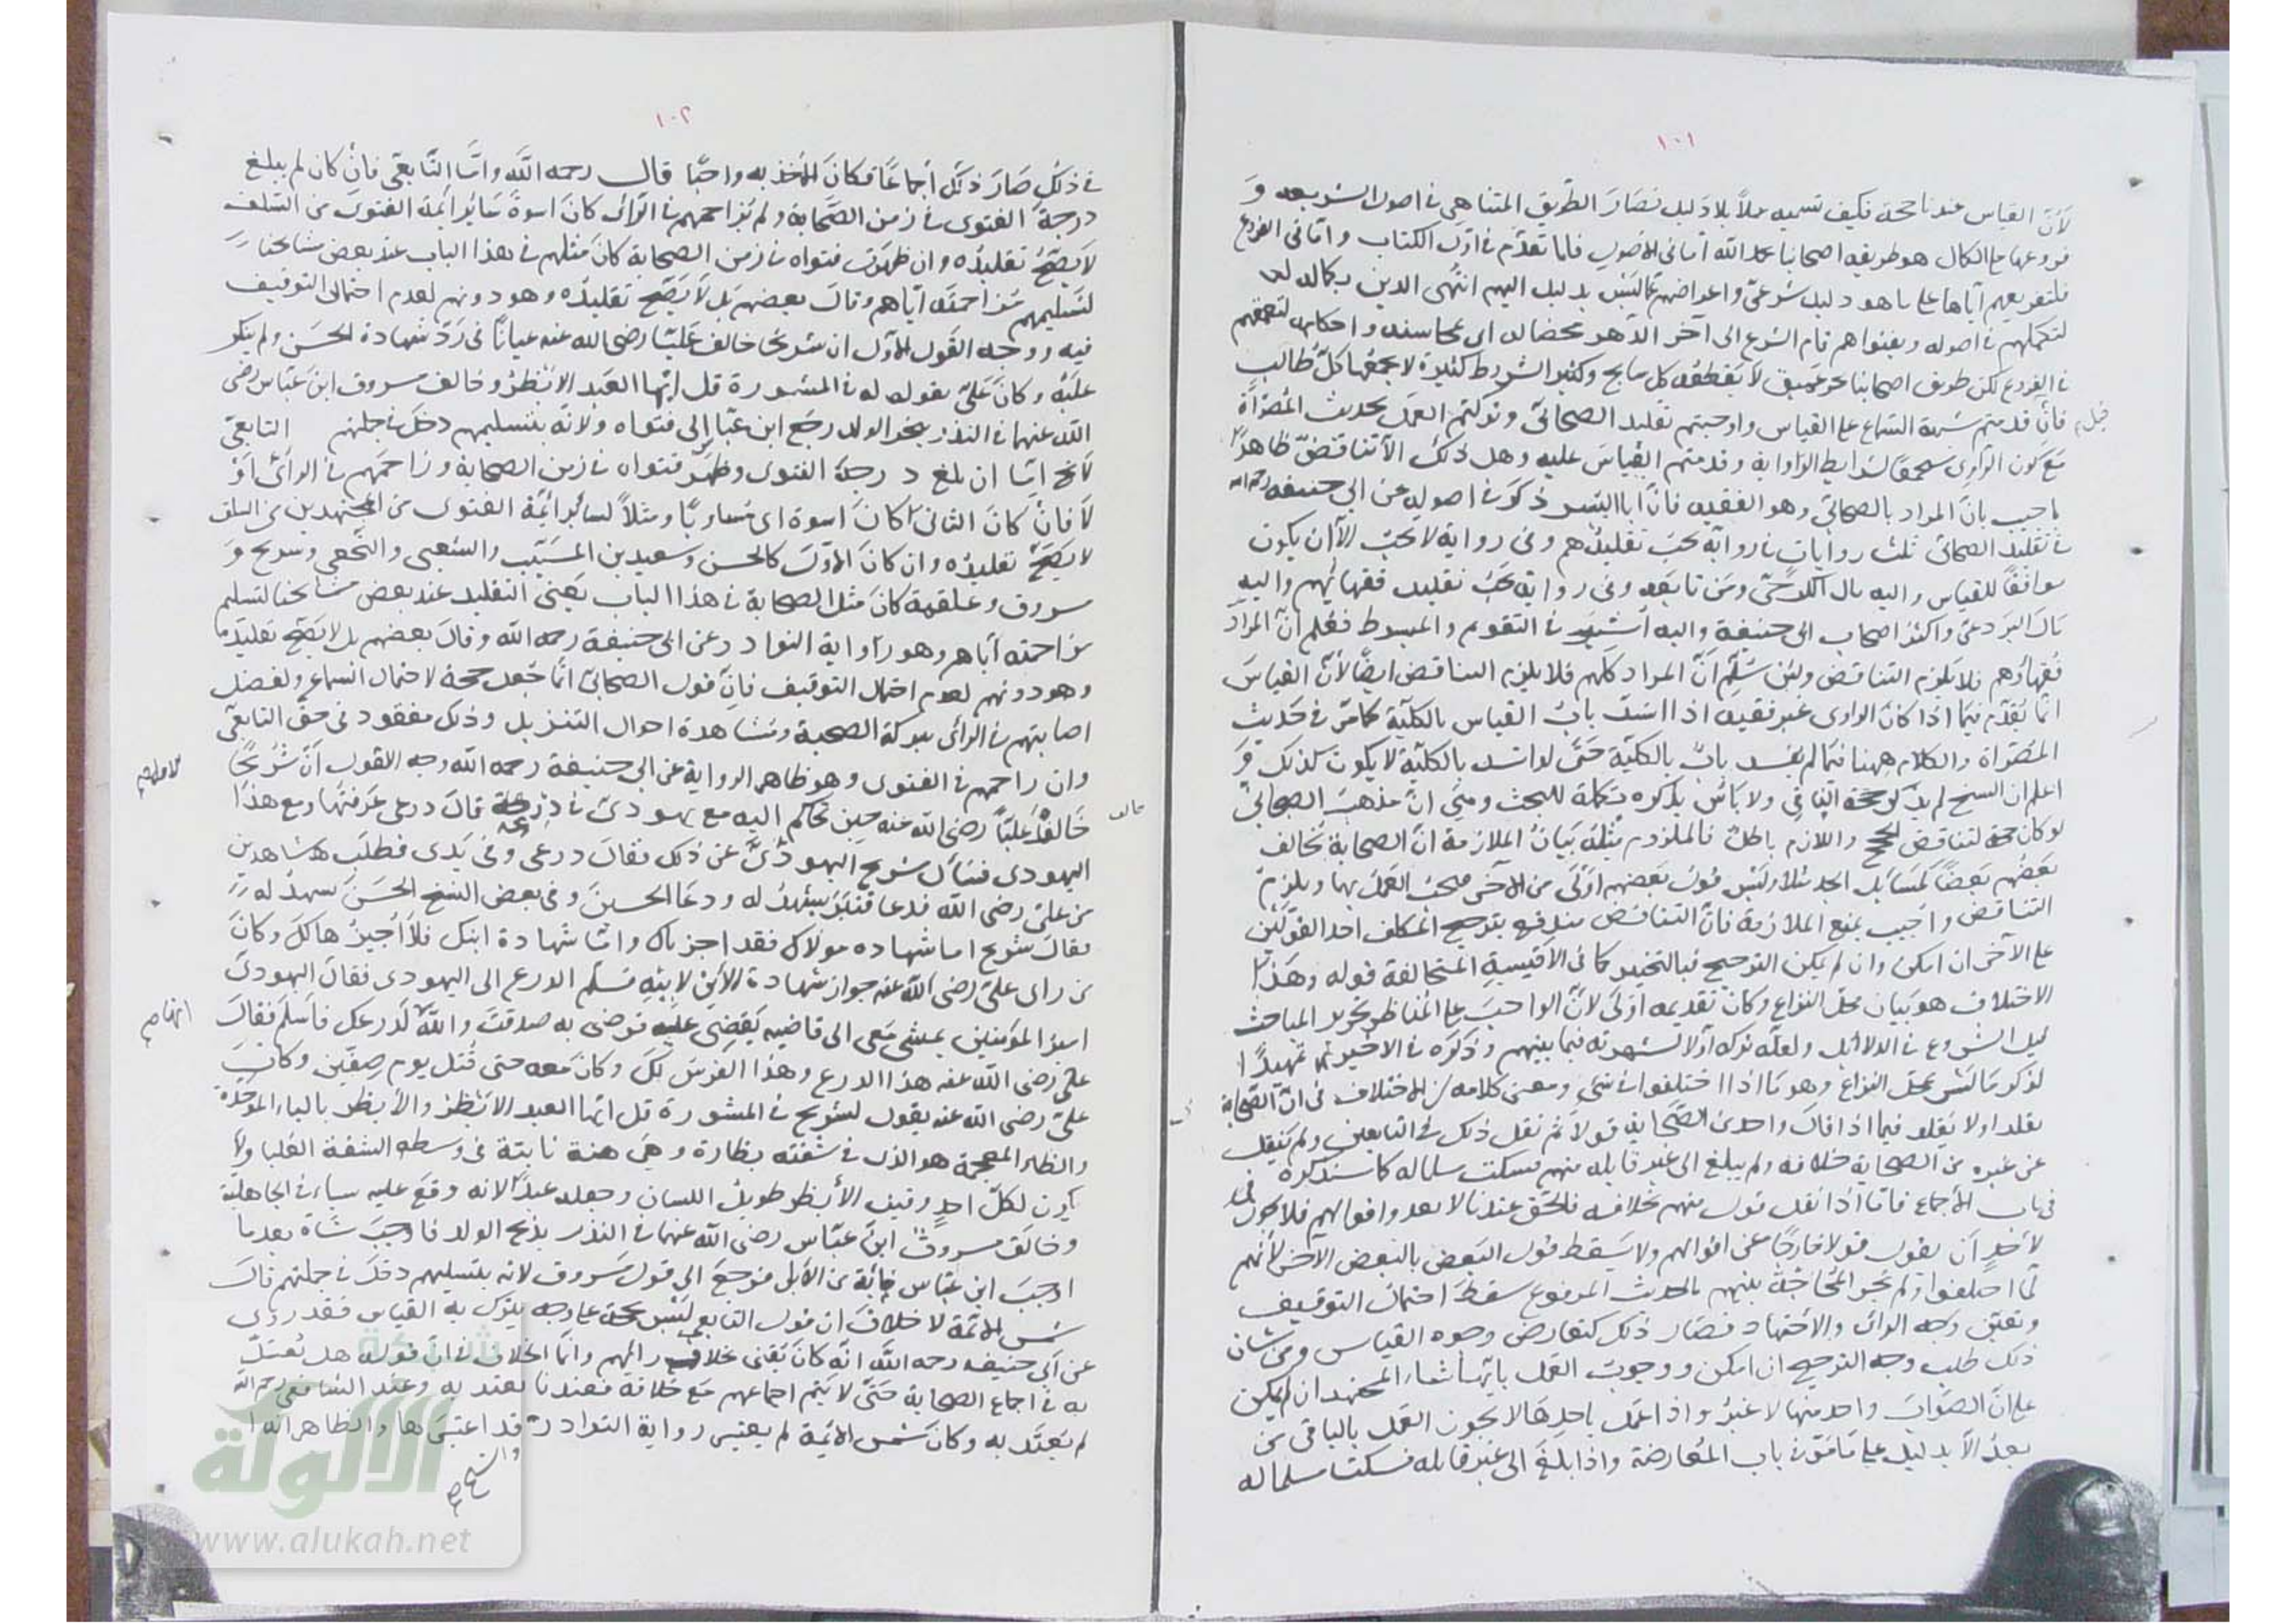 ١٠١
لأن القياس عندنا حجة فكيف تسميه عملاً بلا دليل فصار الطريق المتناهي في اصول الشريعة و
فروعها على الكمال هو طريقه اصحابنا رحمه الله اما في الأصول فلما تقدم في اول الكتاب واما في الفروع
فلتفريعهم اياها على ما هو دليل شرعي واعراضهم عما ليس بدليل اليهم انتهى الدين بكماله
لتكملهم في اصوله وبفتواهم قام الشرع الى آخر الدهر بخصاله اي محاسنه واحكامه
في الفروع لكن طريق اصحابنا بحر عميق لا يقطعه كل سابح وكثير الشروط كثيرة لا يجمعها كل طالب
فان قدمتم شبهة السماع على القياس واوجبتم تقليد الصحابي وتركتم العمل بحديث المصراة
مع كون الراوي مستجمعا لشرايط الرواية وقدمتم القياس عليه وهل ذلك الا تناقض ظاهر
اجيب بان المراد بالصحابي وهو الفقيه فان ابا اليسر ذكر في اصوله عن ابي حنيفة رحمه الله
في تقليد الصحابي ثلث روايات في رواية يجب تقليدهم وفي رواية لا يجب الا ان يكون
موافقا للقياس واليه مال الكرخي ومن تابعه وفي رواية يجب تقليد فقهائهم واليه
مال البردعي واكثر اصحاب ابي حنيفة واليه اشير في التقويم والمبسوط فعلم ان المراد
فقهاؤهم فلا يلزم التناقض ولئن سلم ان المراد كلهم فلا يلزم التناقض ايضا لأن القياس
انما يقدم فيما اذا كان الراوي غير فقيه اذا انسد باب القياس بالكلية كما مر في حديث
المصراة والكلام ههنا فيما لم ينسد باب بالكلية حتى لو انسد بالكلية لا يكون كذلك و
اعلم ان الشيخ لم يذكر حجة الشافعي ولا بأس بذكره تكملة للبحث وهي ان مذهب الصحابي
لو كان حجة لتناقض الحجج واللازم باطل فالملزوم مثله بيان الملازمة ان الصحابة يخالف
بعضهم بعضا كمسايل الجد مثلا وليس قول بعضهم اولى من الآخر فيجب العمل بها ويلزم
التناقض واجيب بمنع الملازمة فان التناقض مندفع بترجيح المكلف احد القولين
على الآخر ان امكن وان لم يكن الترجيح فبالتخيير كما في الأقيسة المتخالفة قوله وهذا
الاختلاف هو بيان محل النزاع وكان تقديمه اولى لان الواجب على المناظر تحرير المباحث
قبل الشروع في الدلائل ولعله تركه اولا لشهرته فيما بينهم وذكره في الاخير تمهيدا
لذكر ما ليس محل النزاع وهو ما اذا اختلفوا في شيء ومعنى كلامه ان الاختلاف في ان الصحابة
يقلد او لا يقلد فيما اذا قال واحد من الصحابة قولا ثم نقل ذلك في التابعين ولم ينقل
عن غيره من الصحابة خلافه ولم يبلغ الى غير قايله منهم فسكت مسلما له كما سنذكره
في باب الأجماع فاما اذا نقل قول منهم بخلافه فالحق عندنا لا يعدو اقوالهم فلا يجوز
لأحد ان يقول قولا خارجا عن اقوالهم ولا يسقط قول البعض بالبعض الآخر لأنهم
لما اختلفوا ولم تجر المحاجة بينهم بالحديث المرفوع سقط احتمال التوقيف
وتعين وجه الرأي والأجتهاد فصار ذلك كتعارض وجوه القياس ومن شان
ذلك طلب وجه الترجيح ان امكن ووجوب العمل بايها شاء المجتهد ان لم يكن
على ان الصواب واحد منها لا غير واذا عمل باحدها لا يجوز العمل بالباقي من
بعد الا بدليل على ما مر في باب المعارضة واذا بلغ الى غير قايله فسكت مسلما له
١٠٢
في ذلك صار ذلك اجماعا فكان الأخذ به واجبا قال رحمه الله واما التابعي فان كان لم يبلغ
درجة الفتوى في زمن الصحابة ولم يزاحمهم في الرأي كان اسوة سائر ائمة الفتوى من السلف
لا يصح تقليده وان ظهرت فتواه في زمن الصحابة كان مثلهم في هذا الباب عند بعض مشايخنا
لتسليمهم مزاحمته اياهم وقال بعضهم بل لا يصح تقليده وهو دونهم لعدم احتمال التوقيف
فيه ووجه القول الأول ان شريحا خالف عليا رضي الله عنه عيانا في رد شهادة الحسن ولم ينكر
عليه وكان علي يقول له في المشورة قل ايها العبد الأبظر وخالف مسروق ابن عباس رضي
الله عنهما في النذر بنحر الولد رجع ابن عباس الى فتواه ولأنه بتسليمهم دخل في جملتهم التابعي
لا يخ اما ان بلغ درجة الفتوى وظهر فتواه في زمن الصحابة وزاحمهم في الرأي او
لا فان كان الثاني كان اسوة اي مساويا ومثلا لسائر ائمة الفتوى من المجتهدين من السلف
لا يصح تقليده وان كان الأول كالحسن وسعيد بن المسيب والشعبي والنخعي وشريح و
مسروق وعلقمة كان مثل الصحابة في هذا الباب يعني التقليد عند بعض مشايخنا لتسليم
مزاحمته اياهم وهو رواية النوادر عن ابي حنيفة رحمه الله وقال بعضهم بل لا يصح تقليده
وهو دونهم لعدم احتمال التوقيف فان قول الصحابي انما جعل حجة لاحتمال السماع ولفضل
اصابتهم في الرأي ببركة الصحبة ومشاهدة احوال التنزيل وذلك مفقود في حق التابعي
وان زاحمهم في الفتوى وهو ظاهر الرواية عن ابي حنيفة رحمه الله وجه القول ان شريحا
خالف عليا رضي الله عنه حين تحاكم اليه مع يهودي في درعه قال درعي عرفتها ومع هذا
اليهودي فسأل شريح اليهودي عن ذلك فقال درعي وفي يدي فطلب شاهدين
من علي رضي الله فدعا قنبر يشهد له ودعا الحسين وفي بعض النسخ الحسن يشهد له
فقال شريح اما شهاده مولاك فقد اجزناك واما شهادة ابنك فلا أجيزها لك وكان
من راى علي رضي الله عنه جواز شهادة الأبن لابيه فسلم الدرع الى اليهودي فقال اليهودي
امير المؤمنين يمشي معي الى قاضيه يقضي عليه فرضي به صدقت والله لدرعك فأسلم فقال
علي رضي الله عنه هذا الدرع وهذا الفرس لك وكان معه حتى قتل يوم صفين وكان
علي رضي الله عنه يقول لشريح في المشورة قل ايها العبد الأبظر والأبظر بالباء الموحدة
والظاء المعجمة هو الذي في شفته بظارة وهي هنة نابتة في وسط الشفة العليا ولا
يكون لكل احد وقيل الأبظر طويل اللسان وجعله عبدا لانه وقع عليه سباء في الجاهلية
وخالف مسروق ابن عباس رضي الله عنهما في النذر بذبح الولد فاوجب شاة بعدما
اوجب ابن عباس مائة من الأبل فرجع الى قول مسروق لانه بتسليمهم دخل في جملتهم قال
شمس الأئمة لا خلاف ان قول التابعي ليس بحجة على وجه يترك به القياس فقد روى
عن ابي حنيفة رحمه الله انه كان يفتي بخلاف رائهم وانما الخلاف في ان قوله هل يعتد
به في اجماع الصحابة حتى لا يتم اجماعهم مع خلافه فعندنا يعتد به وعند الشافعي رحمه الله
لم يعتد به وكان شمس الأئمة لم يعتبر رواية النوادر قد اعتبرها والظاهر انه
شبكة
الألوكة
www.alukah.net